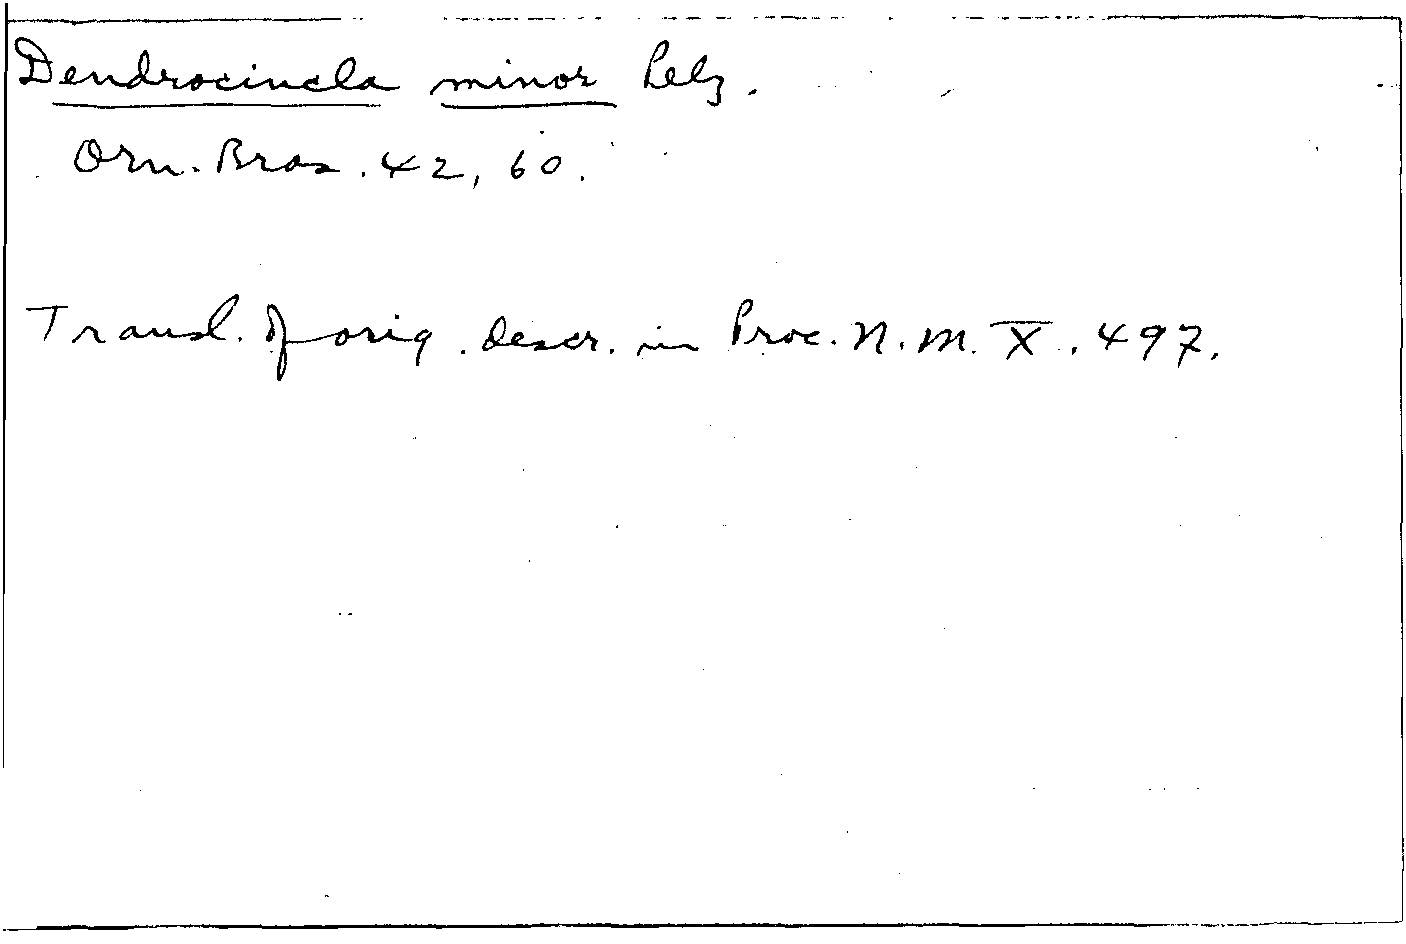 Dendrocincla minor Pelz.
Orn. Bras. 42, 60.
Transl. of orig. descr. in Proc. N. M. X. 497.